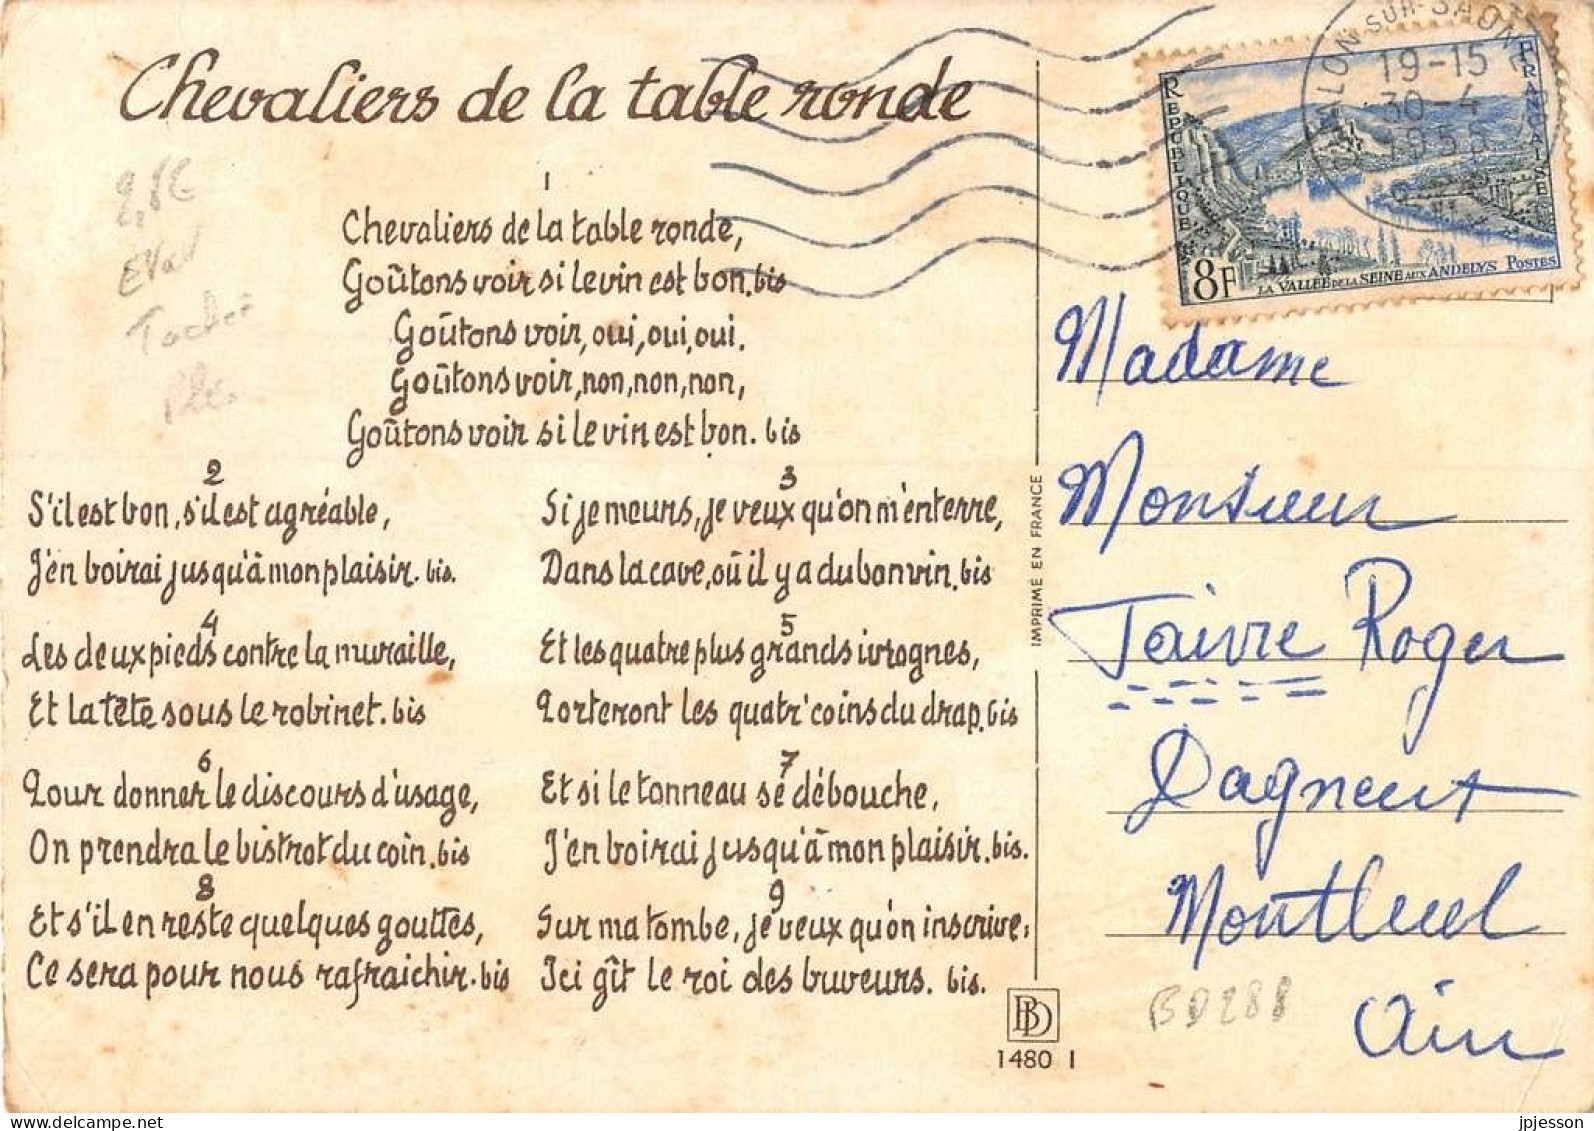 Chevaliers de la table ronde
1
Chevaliers de la table ronde,
Goûtons voir si le vin est bon. bis
Goûtons voir, oui, oui, oui.
Goûtons voir, non, non, non,
Goûtons voir si le vin est bon. bis
2
S'il est bon, s'il est agréable,
J'en boirai jusqu'à mon plaisir. bis.
3
Si je meurs, je veux qu'on m'enterre,
Dans la cave, où il y a du bon vin. bis
4
Les deux pieds contre la muraille,
Et la tête sous le robinet. bis
5
Et les quatre plus grands ivrognes,
Porteront les quatr'coins du drap. bis
6
Pour donner le discours d'usage,
On prendra le bistrot du coin. bis
7
Et si le tonneau se débouche,
J'en boirai jusqu'à mon plaisir. bis.
8
Et s'il en reste quelques gouttes,
Ce sera pour nous rafraichir. bis
9
Sur ma tombe, je veux qu'on inscrive:
Ici gît le roi des buveurs. bis.
IMPRIMÉ EN FRANCE
BD
1480 I
SUR-SAÔNE
19-15
30-4
1955
RÉPUBLIQUE FRANÇAISE
8F
LA VALLÉE DE LA SEINE AUX ANDELYS POSTES
Madame
Monsieur
Taivre Roger
Dagneux
Montluel
Ain
BD288
2,5€
Eval
Tachée
delcampe.net
jpjesson